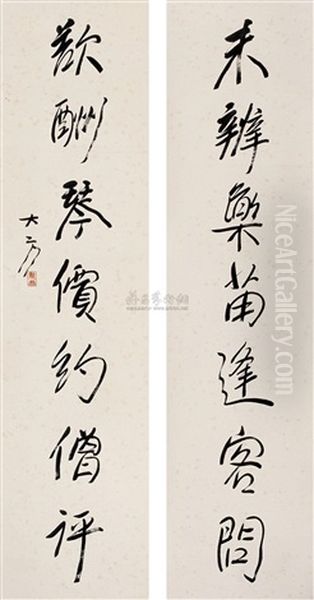 未辨藥苗逢客問
欲酬琴價約僧評
大方
NiceArtGallery.com